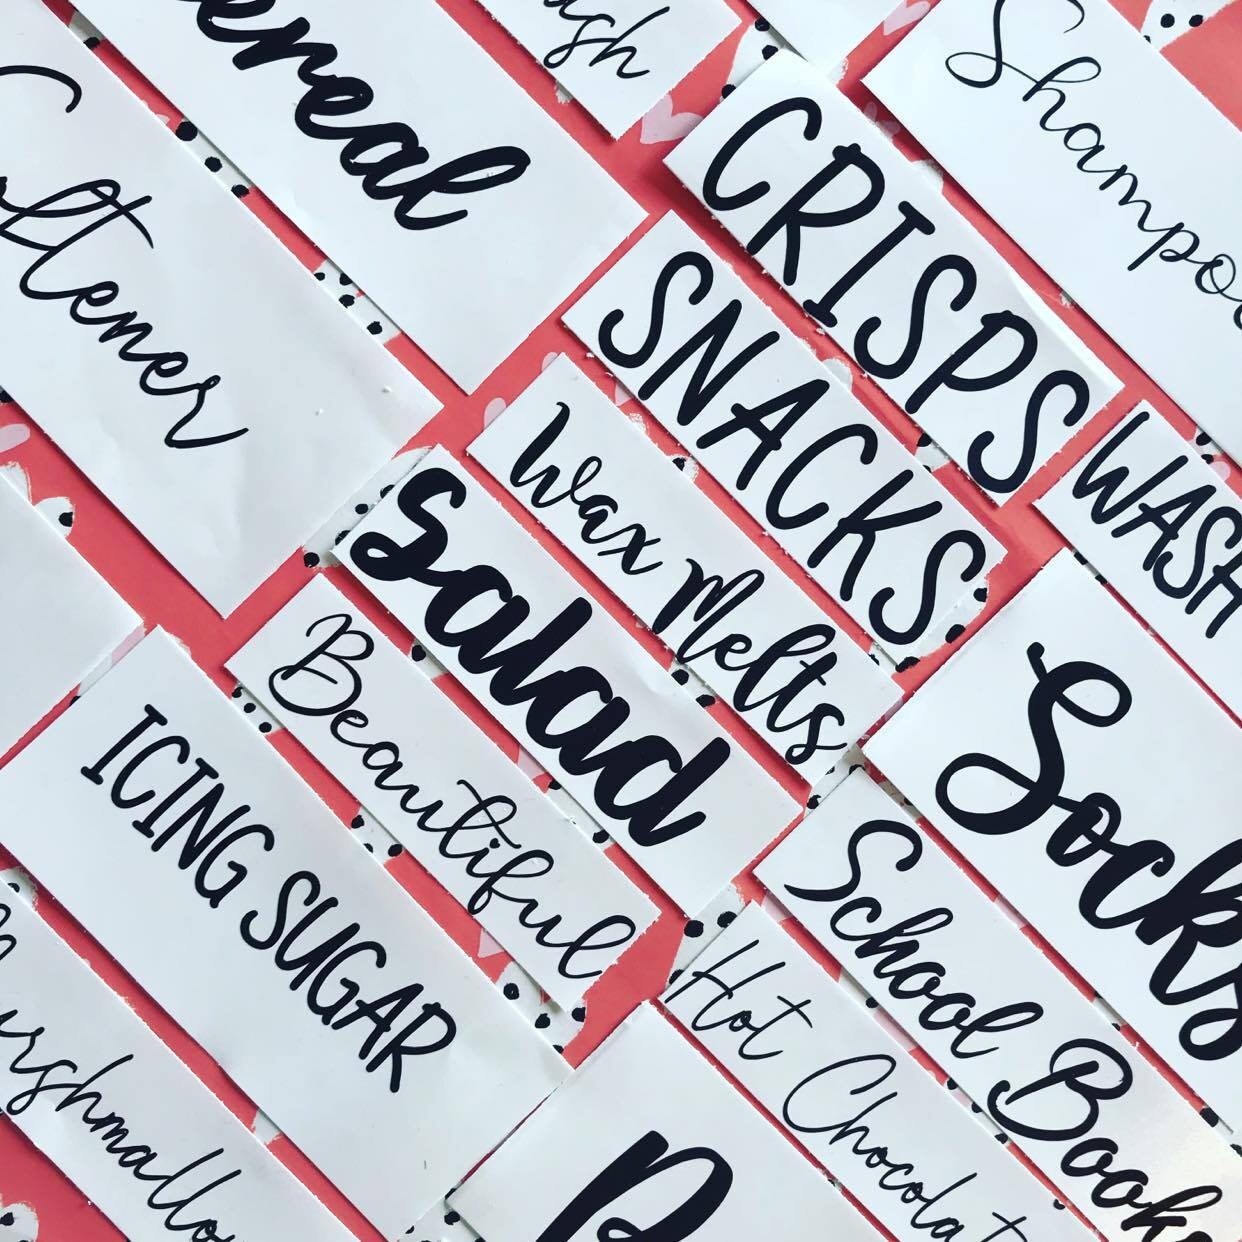 ereal
ash
Shampo
CRISPS
Softener
SNACKS
WASH
Wax Melts
Salad
Beautiful
Socks
ICING SUGAR
School Book
Hot Chocolat
arshmallo
P